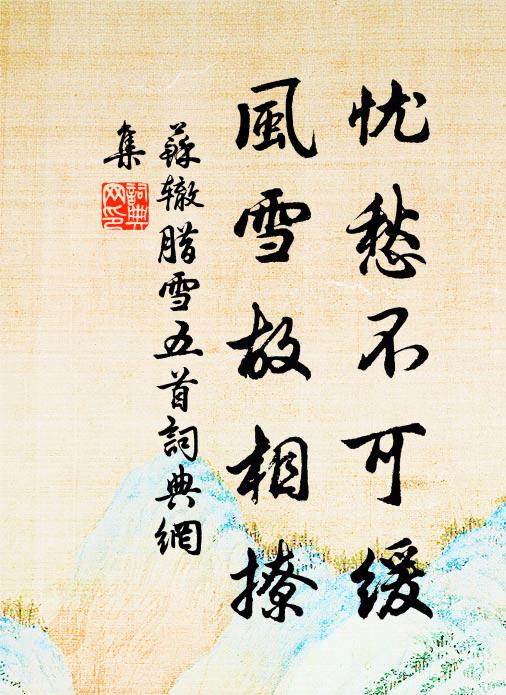 忧愁不可缓
風雪故相撩
蘇辙腊雪五首詞典網
集
詞典
网印